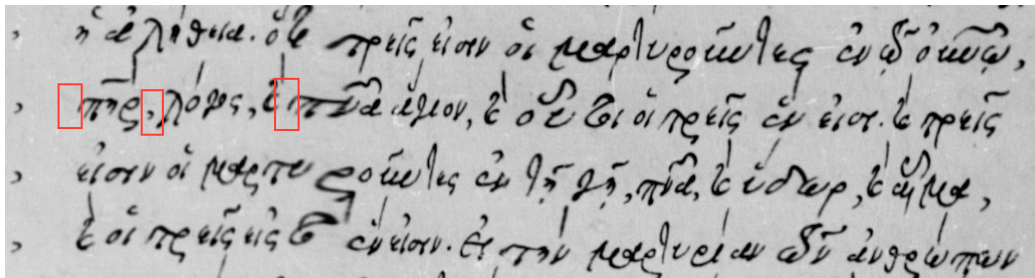 ἡ ἀλήθεια. ὅτι τρεῖς εἰσιν οἱ μαρτυροῦντες ἐν τῷ οὐνῷ,
πηρ, λόγος, καὶ πνα ἅγιον, καὶ οὗτοι οἱ τρεῖς ἕν εἰσι. καὶ τρεῖς
εἰσιν οἱ μαρτυροῦντες ἐν τῇ γῇ, πνα, καὶ ὕδωρ, καὶ αἷμα,
καὶ οἱ τρεῖς εἰς τὸ ἕν εἰσιν. εἰ τὴν μαρτυρίαν τῶν ἀνθρώπων